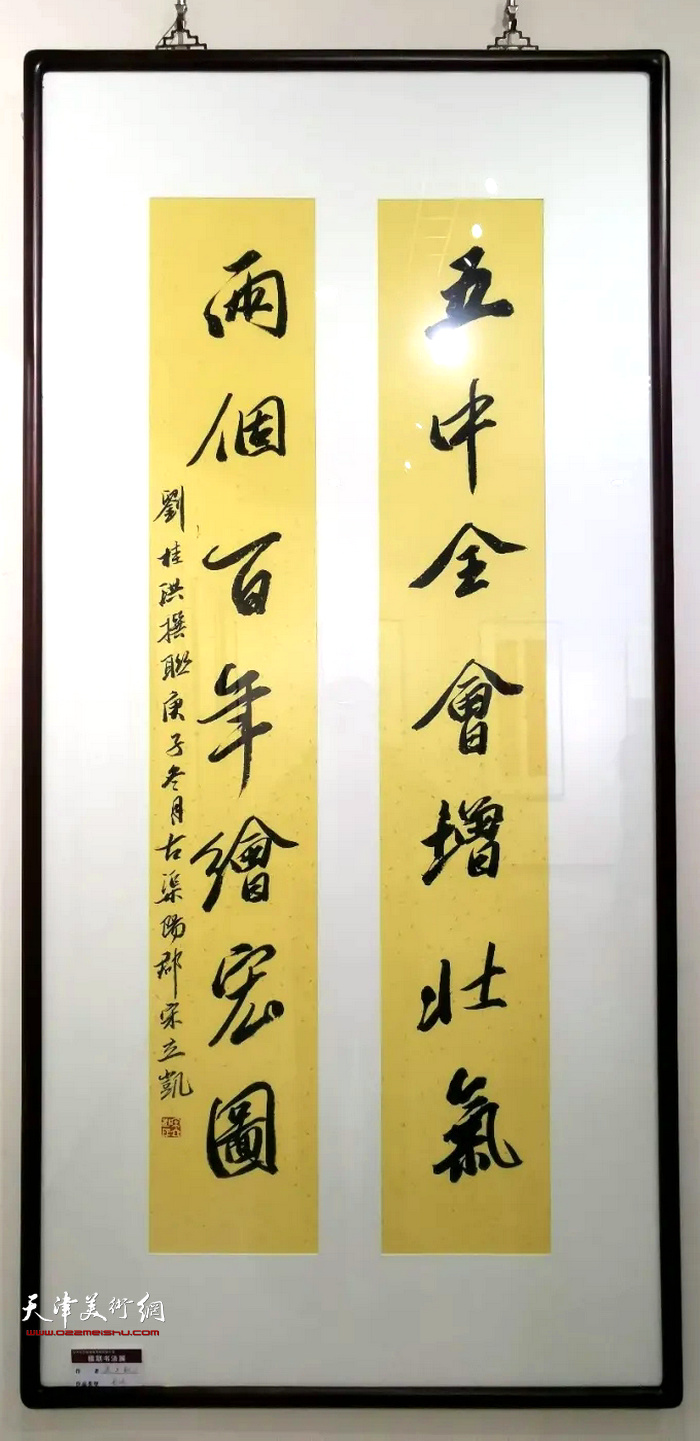 五中全會增壯氣
兩個百年繪宏圖
劉桂洪撰聯庚子冬月古渠陽郡宋立凱
天津美術網
www.022meishu.com
楹联书法展
作 者
作品类型